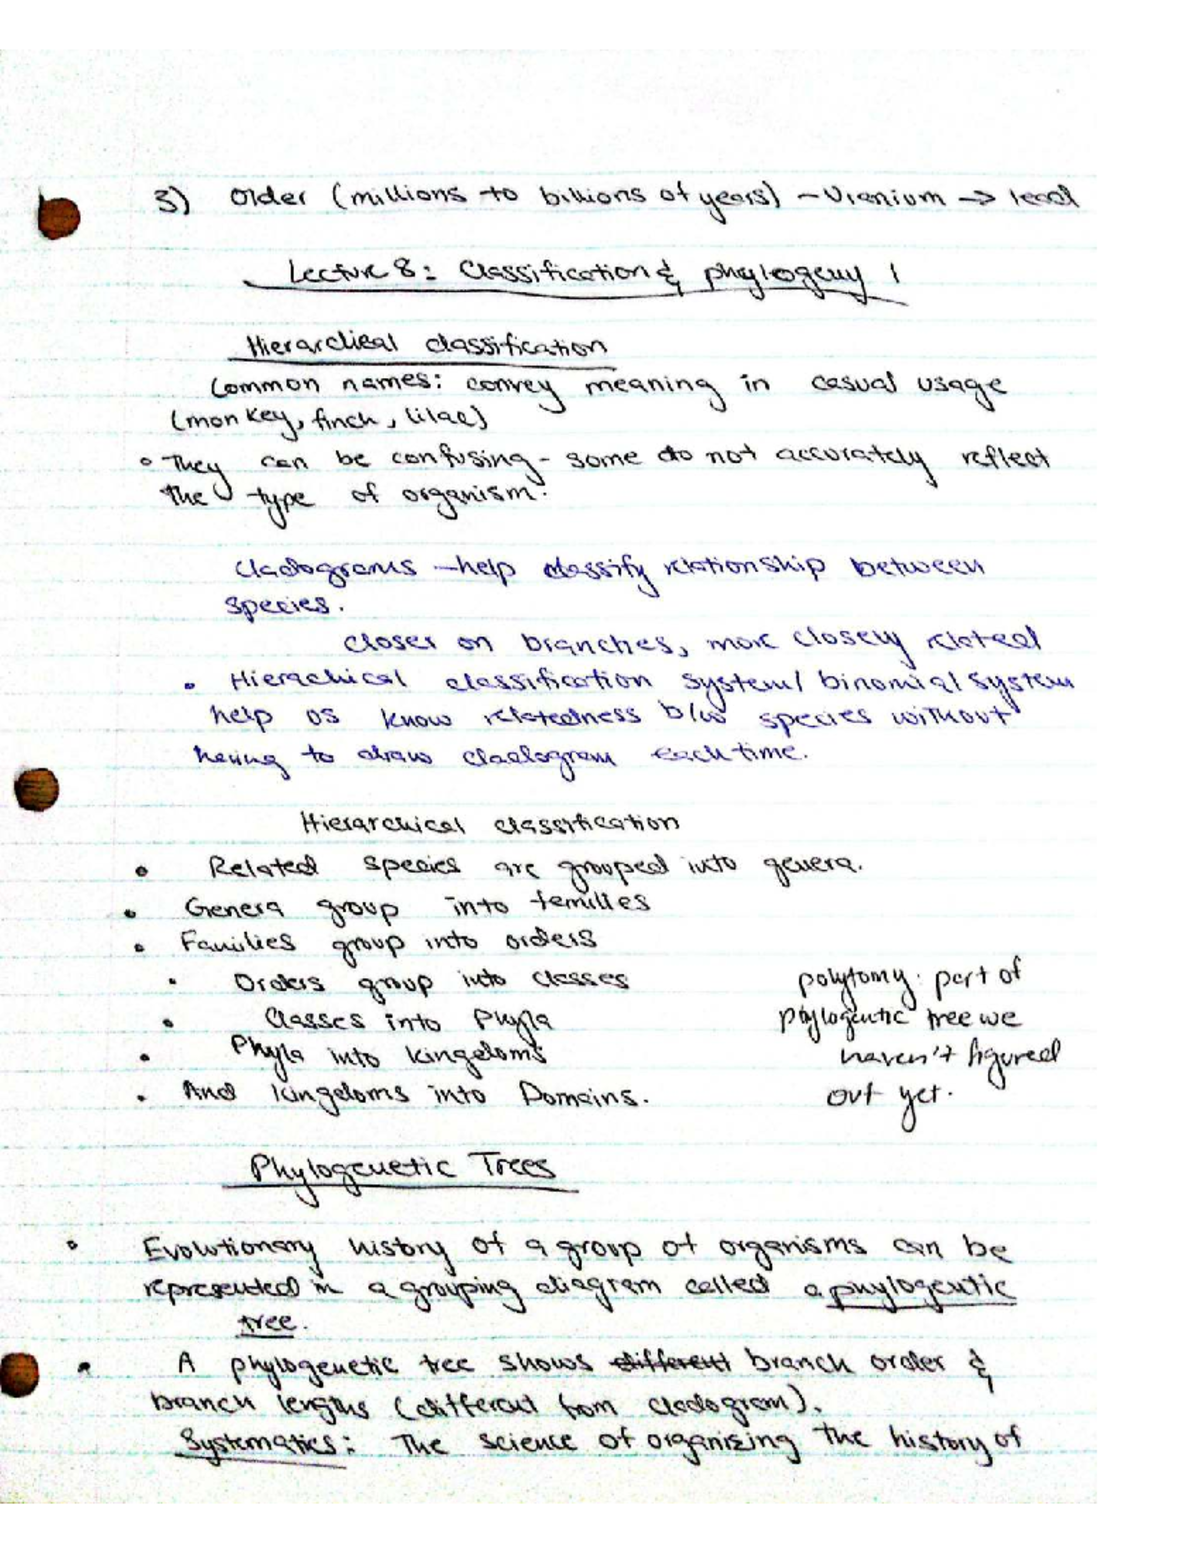 3) Older (millions to billions of years) - Uranium → lead
Lecture 8: Classification & phylogeny 1
Hierarchical classification
Common names: convey meaning in casual usage
(monkey, finch, lilac)
• They can be confusing - some do not accurately reflect
the type of organism.
Cladograms - help classify relationship between
species.
closer on branches, more closely related
• Hierachical classification system/ binomial system
help us know relatedness b/w species without
having to draw cladogram each time.
Hierarchical classification
• Related species are grouped into genera.
• Genera group into families
• Families group into orders
• Orders group into classes
• Classes into Phyla
• Phyla into kingdoms
• And kingdoms into Domains.
polytomy: part of
phylogentic tree we
haven't figured
out yet.
Phylogenetic Trees
• Evolutionary history of a group of organisms can be
represented in a grouping diagram called a phylogentic
tree.
• A phylogenetic tree shows different branch order &
branch lengths (different from cladogram).
Systematics: The science of organizing the history of